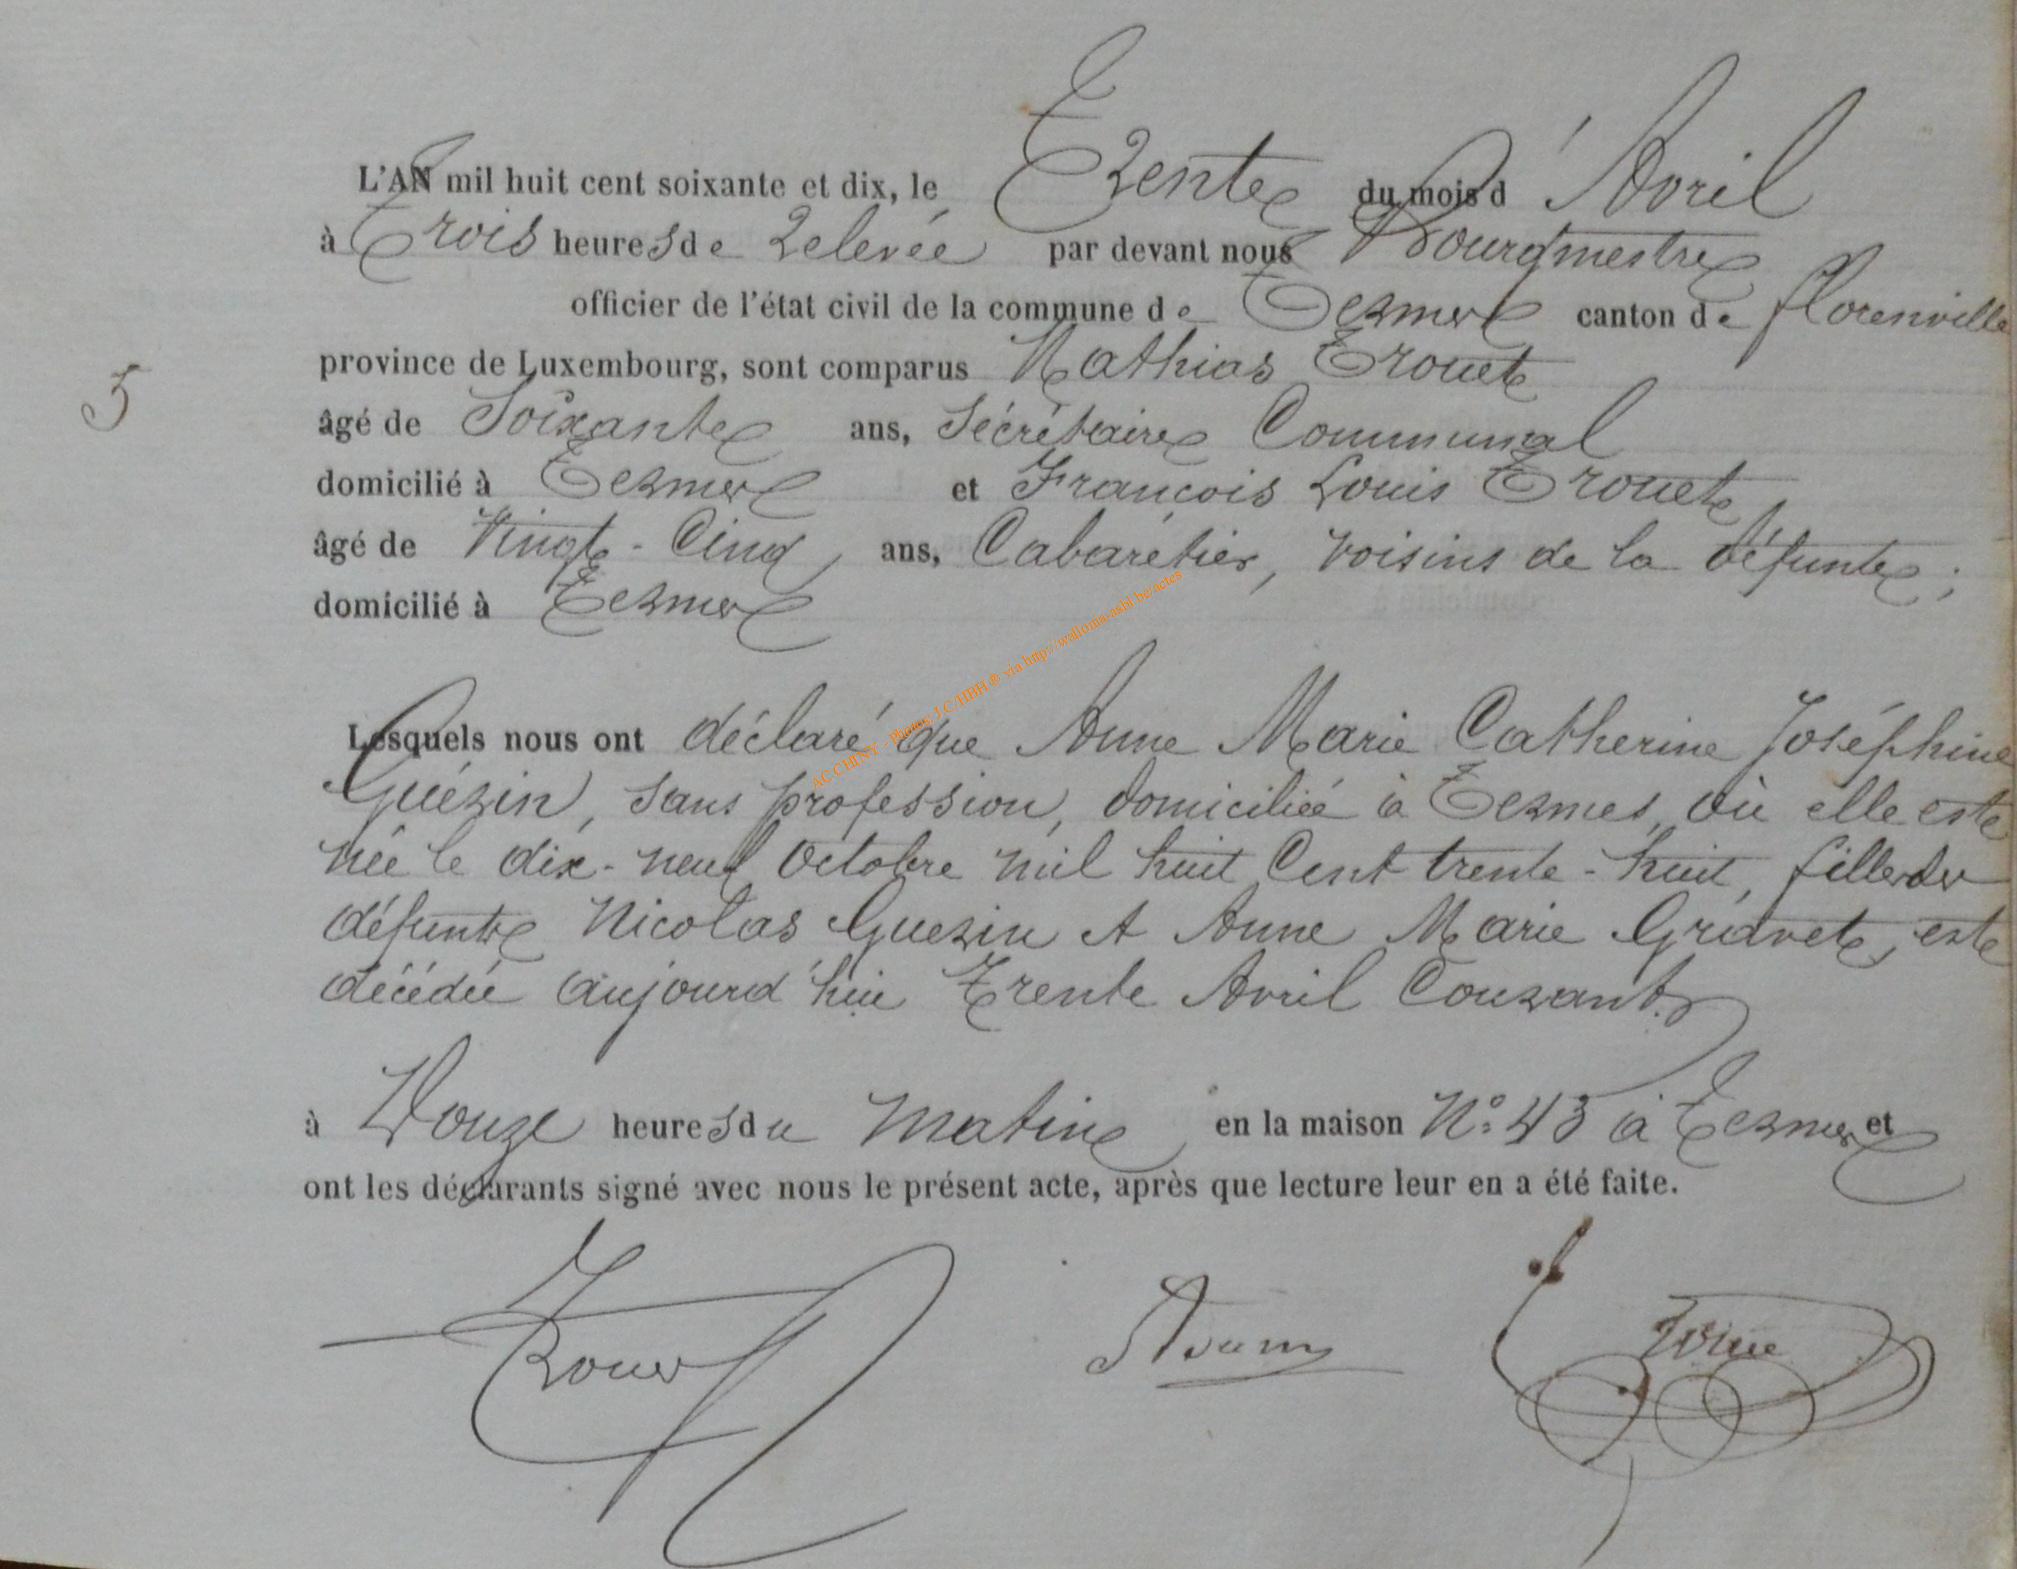 L'AN mil huit cent soixante et dix, le Trente du mois d'Avril
à Trois heures de relevée par devant nous Bourgmestre
officier de l'état civil de la commune de Termes canton de florenville
province de Luxembourg, sont comparus Mathias Trouet
5
âgé de Soixante ans, Sécrétaire Communal
domicilié à Termes et François Louis Trouet
âgé de Vingt-Cinq ans, Cabarétier, voisins de la défunte;
domicilié à Termes
ACCHINY - Photos: J.C/HBH @ via http://wallonia-asbl.be/actes
Lesquels nous ont déclaré que Anne Marie Catherine Joséphine
Guézin, sans profession, domiciliée à Termes, où elle est
née le dix-neuf Octobre mil huit Cent trente-huit, fille de
défunts Nicolas Guezin et Anne Marie Gridvet, est
décédée aujourd'hui Trente Avril Courant
à Douze heures du matin en la maison N° 43 à Termes et
ont les déclarants signé avec nous le présent acte, après que lecture leur en a été faite.
Trouet